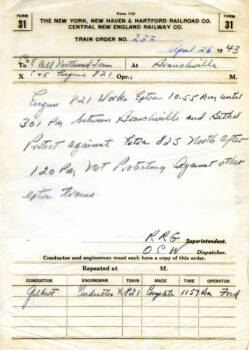 Form 1122
FORM
31
THE NEW YORK, NEW HAVEN & HARTFORD RAILROAD CO.
CENTRAL NEW ENGLAND RAILWAY CO.
FORM
31
TRAIN ORDER NO. 222
April 26 1943
To C&E All Northward Trains At Branchville
X C&E Engine 821 Opr.; M.
Engine 821 Works Extra 10.55 Am until
301 Pm between Branchville and Bethel
Protect against Extra 825 North after
120 Pm Not Protecting Against other
extra trains
RRG Superintendent.
OCW Dispatcher.
Conductor and enginemen must each have a copy of this order.
Repeated at M.
CONDUCTOR ENGINEMAN TRAIN MADE TIME OPERATOR
Gilbert X821 Complete 1157 Am Ford